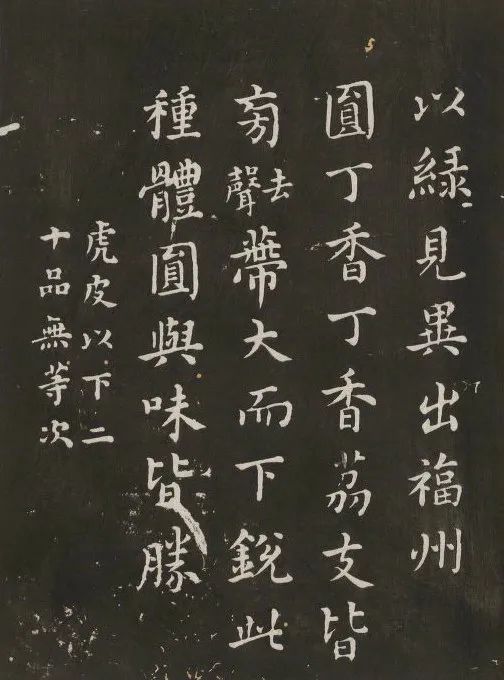 以緑見異出福州
圓丁香丁香茘支皆
旁去聲蔕大而下銳此
種體圓與味皆勝
虎皮以下二
十品無等次